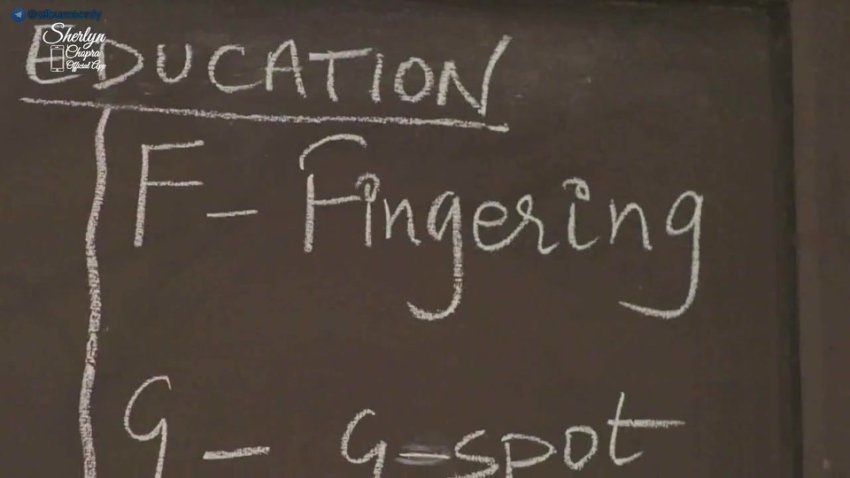 Sherlyn
Chopra
Official App
EDUCATION
F - Fingering
G - G-spot